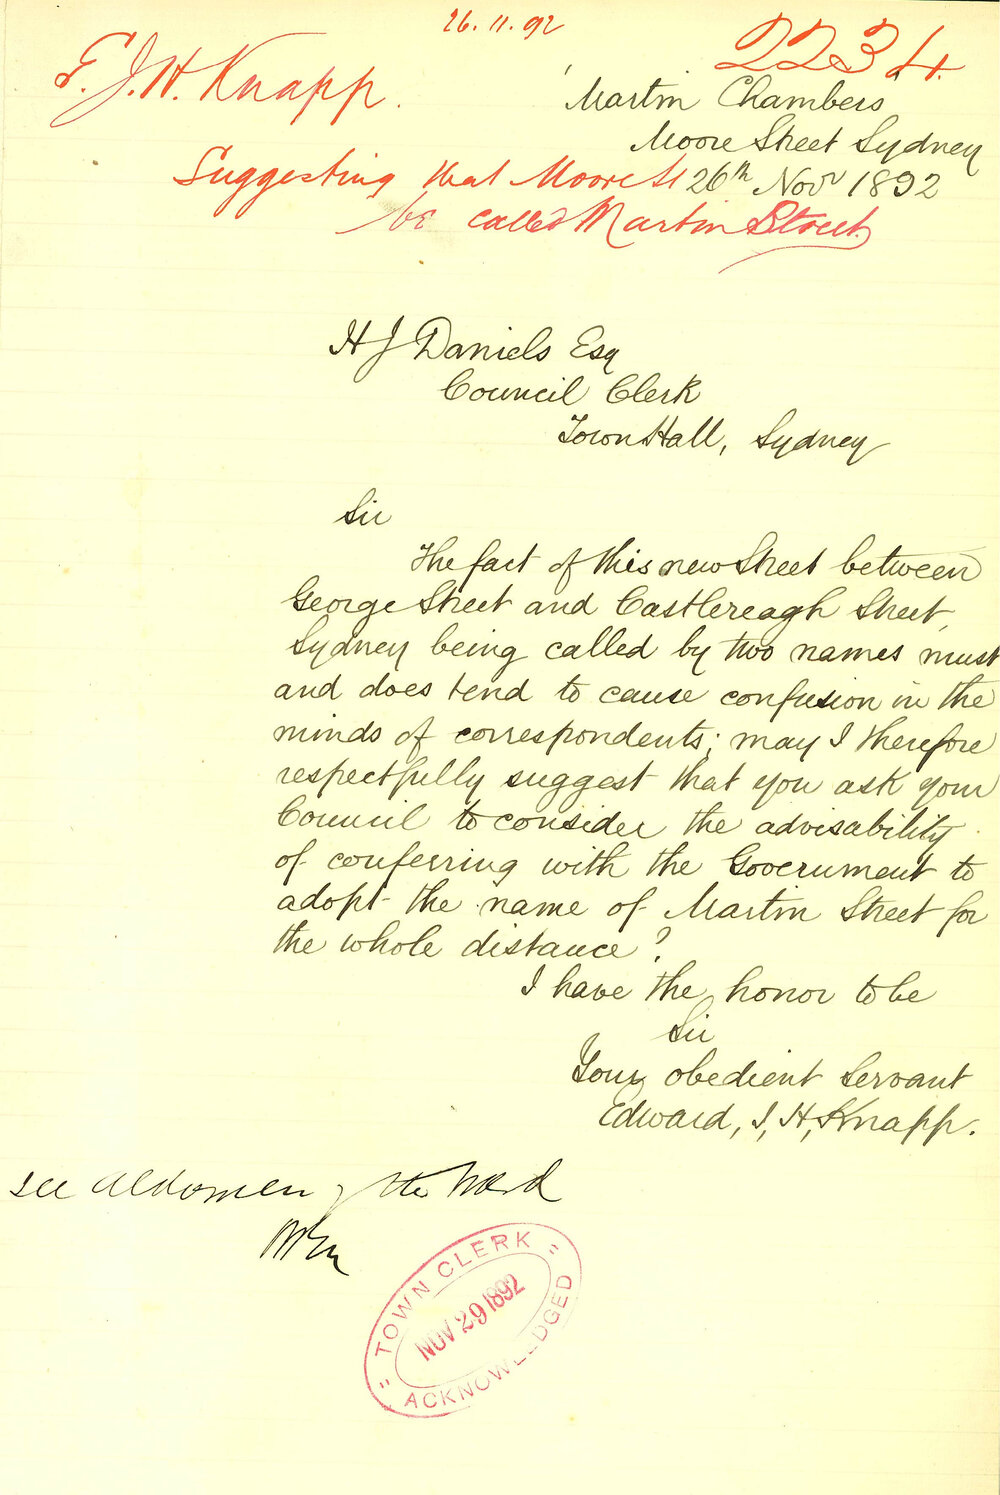 26.11.92
2234
E.J.H. Knapp.
Martin Chambers
Moore Street Sydney
26th Novr 1892
Suggesting that Moore St
be called Martin Street.
H J Daniels Esq
Council Clerk
Town Hall, Sydney
Sir
The fact of this new Street between
George Street and Castlereagh Street,
Sydney being called by two names must
and does tend to cause confusion in the
minds of correspondents; may I therefore
respectfully suggest that you ask your
Council to consider the advisability
of conferring with the Government to
adopt the name of Martin Street for
the whole distance?
I have the honor to be
Sir
Your obedient Servant
Edward, J, H, Knapp.
see Aldermen of the Ward
TOWN CLERK
NOV 29 1892
ACKNOWLEDGED